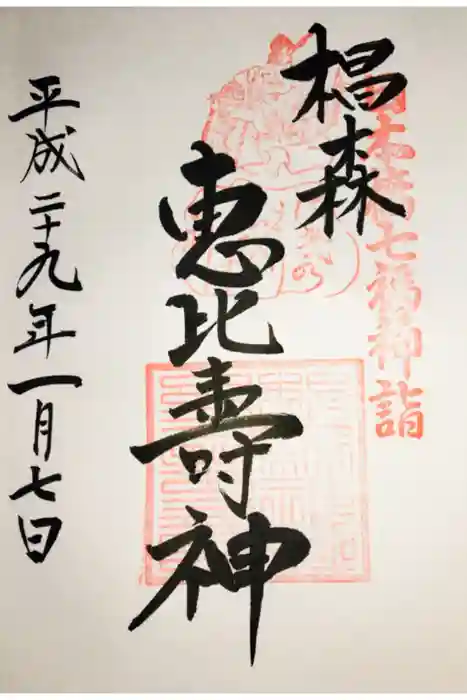 日本橋七福神詣
椙森
恵比壽神
平成二十九年一月七日